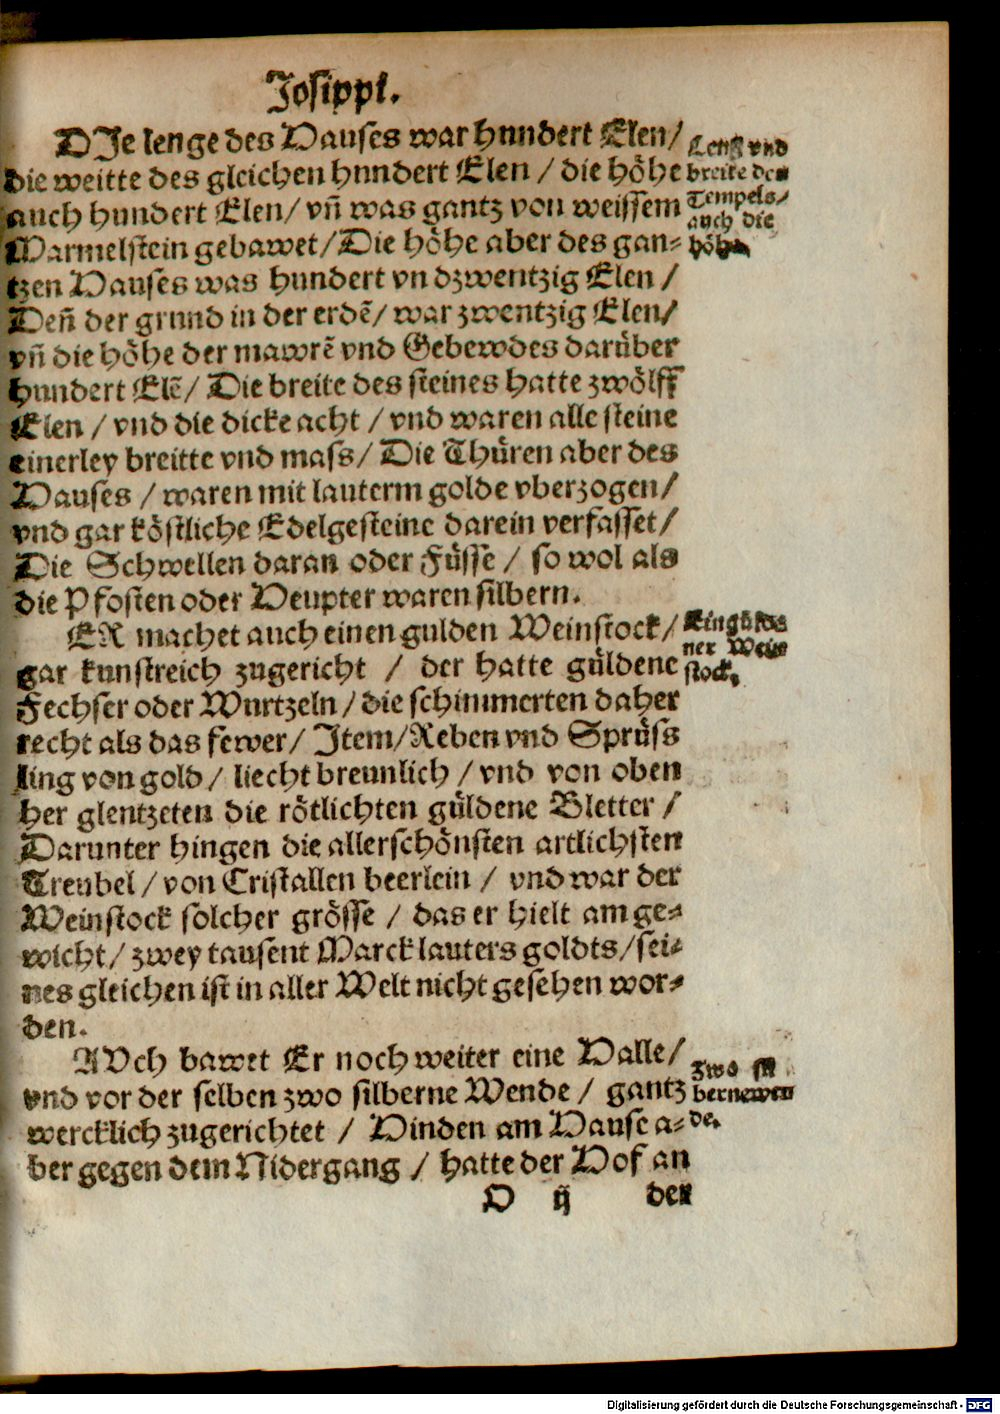 Josippi.
DJe lenge des Hauses war hundert Elen/
die weitte des gleichen hundert Elen / die höhe
auch hundert Elen/ vñ was gantz von weissem
Marmelstein gebawet/Die höhe aber des gan⸗
tzen Hauses was hundert vn dzwentzig Elen /
Deñ der grund in der erdẽ/ war zwentzig Elen/
vñ die höhe der mawrẽ vnd Gebewdes darüber
hundert Elẽ/ Die breite des steines hatte zwölff
Elen / vnd die dicke acht / vnd waren alle steine
einerley breitte vnd mass/ Die Thüren aber des
Hauses / waren mit lauterm golde vberzogen/
vnd gar köstliche Edelgesteine darein verfasset/
Die Schwellen daran oder Füsse / so wol als
die Pfosten oder Heupter waren silbern.
ER machet auch einen gulden Weinstock/
gar kunstreich zugericht / der hatte güldene
Fechser oder Wurtzeln / die schimmerten daher
recht als das fewer/ Jtem/Reben vnd Sprüss
ling von gold / liecht breunlich / vnd von oben
her glentzeten die rötlichten güldene Bletter /
Darunter hingen die allerschönsten artlichsten
Treubel / von Cristallen beerlein / vnd war der
Weinstock solcher grösse / das er hielt am ge⸗
wicht / zwey tausent Marck lauters goldts/sei⸗
nes gleichen ist in aller Welt nicht gesehen wor⸗
den.
AVch bawet Er noch weiter eine Halle/
vnd vor der selben zwo silberne Wende / gantz
wercklich zugerichtet / Hinden am Hause a⸗
ber gegen dem Nidergang / hatte der Hof an
H ij den
Leng vnd
breite des
Tempels/
auch die
höhe
Ein gölde
ner Wein
stock.
Zwo sil
bernewen
de.
Digitalisierung gefördert durch die Deutsche Forschungsgemeinschaft - DFG